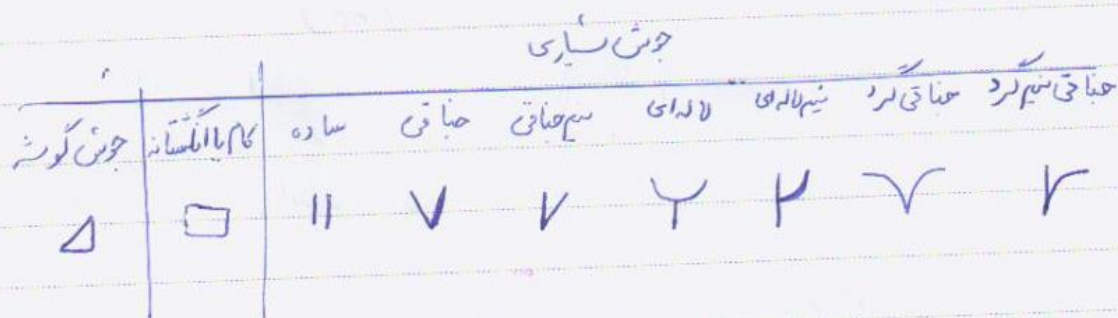 جوش شیاری
جناقی نیم گرد جناقی گرد نیم لاله‌ای لاله‌ای نیم جناقی جناقی ساده کام یا انگشتانه جوش گوشه